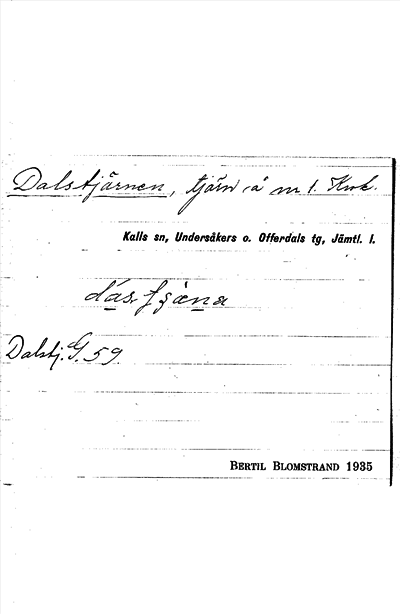 Dalstjärnen, tjärn å nr 1. Kirk.
Kalls sn, Undersåkers o. Offerdals tg, Jämtl. l.
Dalstj. G. 59.
BERTIL BLOMSTRAND 1935